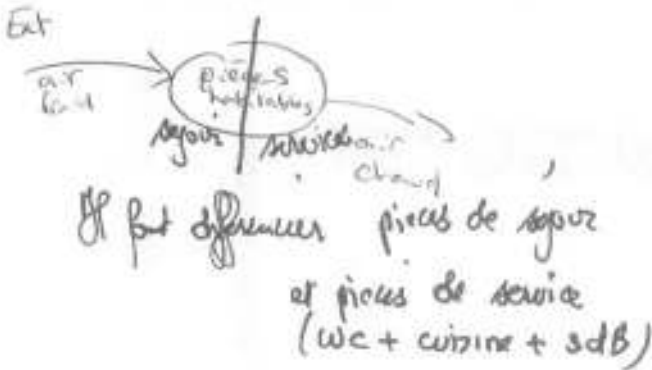 Ext
air
froid
pièces
habitables
séjour service air
chaud
Il faut différencier pièces de séjour
et pièces de service
(wc + cuisine + sdB)